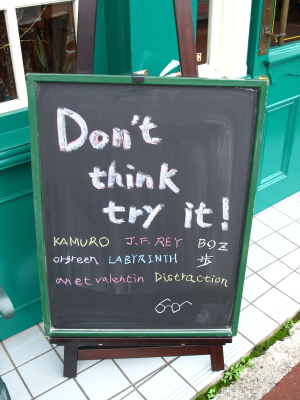 Don't
think
try it!
KAMURO J.F. REY BOZ
orgreen LABYRINTH 歩
an et valentin Distraction